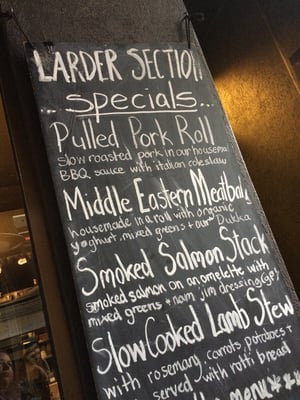 LARDER SECTION
specials...
Pulled Pork Roll
slow roasted pork in our housemade
BBQ sauce with italian coleslaw
Middle Eastern Meatballs
housemade in a roll with organic
yoghurt, mixed greens + our Dukka
Smoked Salmon Stack
smoked salmon on an omelette with
mixed greens + nam jim dressing (gf)
Slow Cooked Lamb Stew
with rosemary, carrots, potatoes +
served with rotti bread
menu